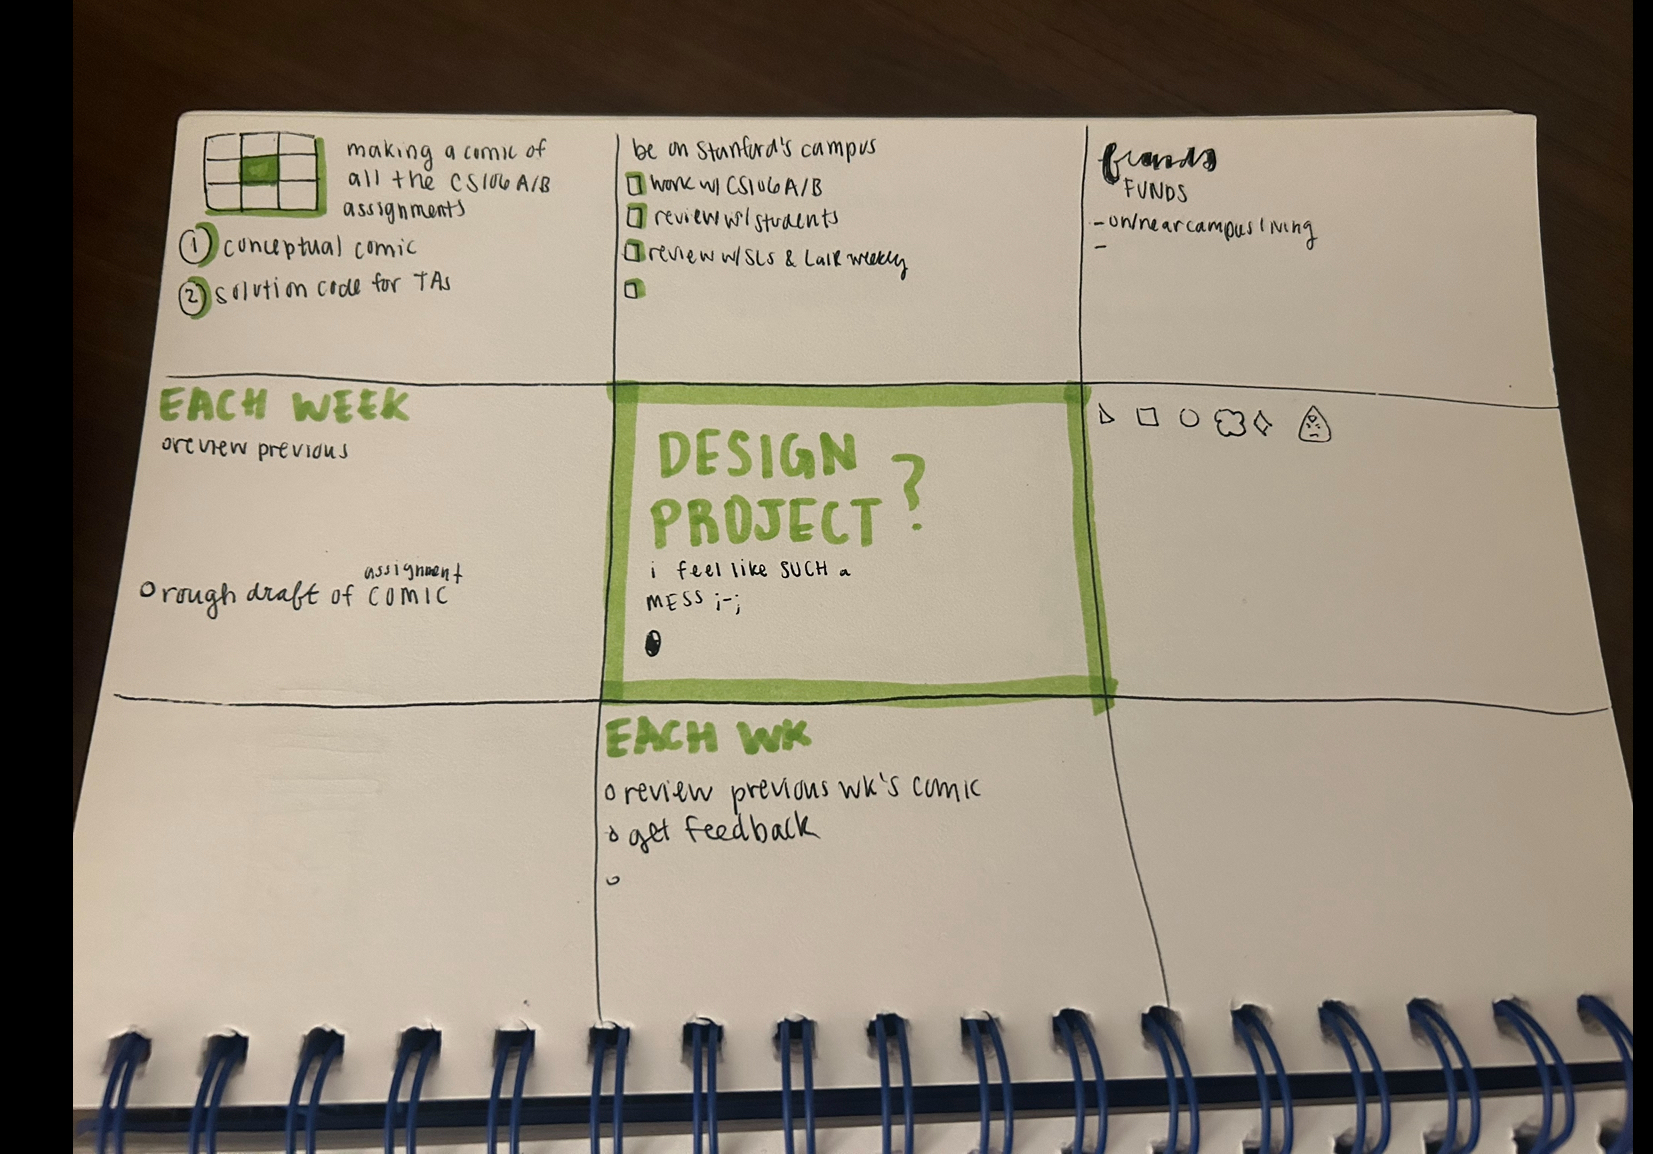 making a comic of
all the CS106 A/B
assignments
① conceptual comic
② solution code for TAs
be on Stanford's campus
work w/ CS106 A/B
review w/ students
review w/ SLs & LaIR weekly
FUNDS
- on/near campus living
-
EACH WEEK
o review previous
assignment
o rough draft of comic
DESIGN
PROJECT?
i feel like SUCH a
MESS ;-;
EACH WK
o review previous wk's comic
o get feedback
o